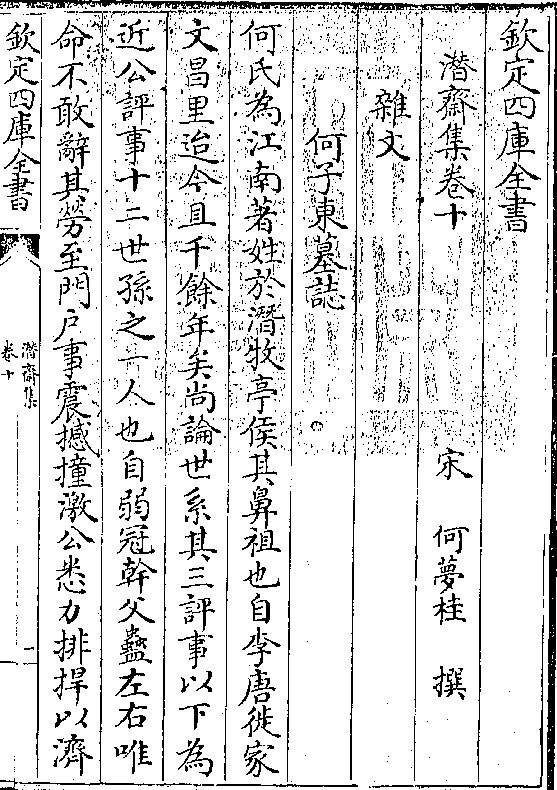 欽定四庫全書
潛齋集卷十
宋 何夢桂 撰
雜文
何子東墓誌
何氏為江南著姓於潛牧亭侯其鼻祖也自李唐徙家
文昌里迨今且千餘年矣尚論世系其三評事以下為
近公評事十二世孫之一人也自弱冠幹父蠱左右唯
命不敢辭其勞至門户事震撼撞激公悉力排捍以濟
欽定四庫全書
潛齋集
卷十
一